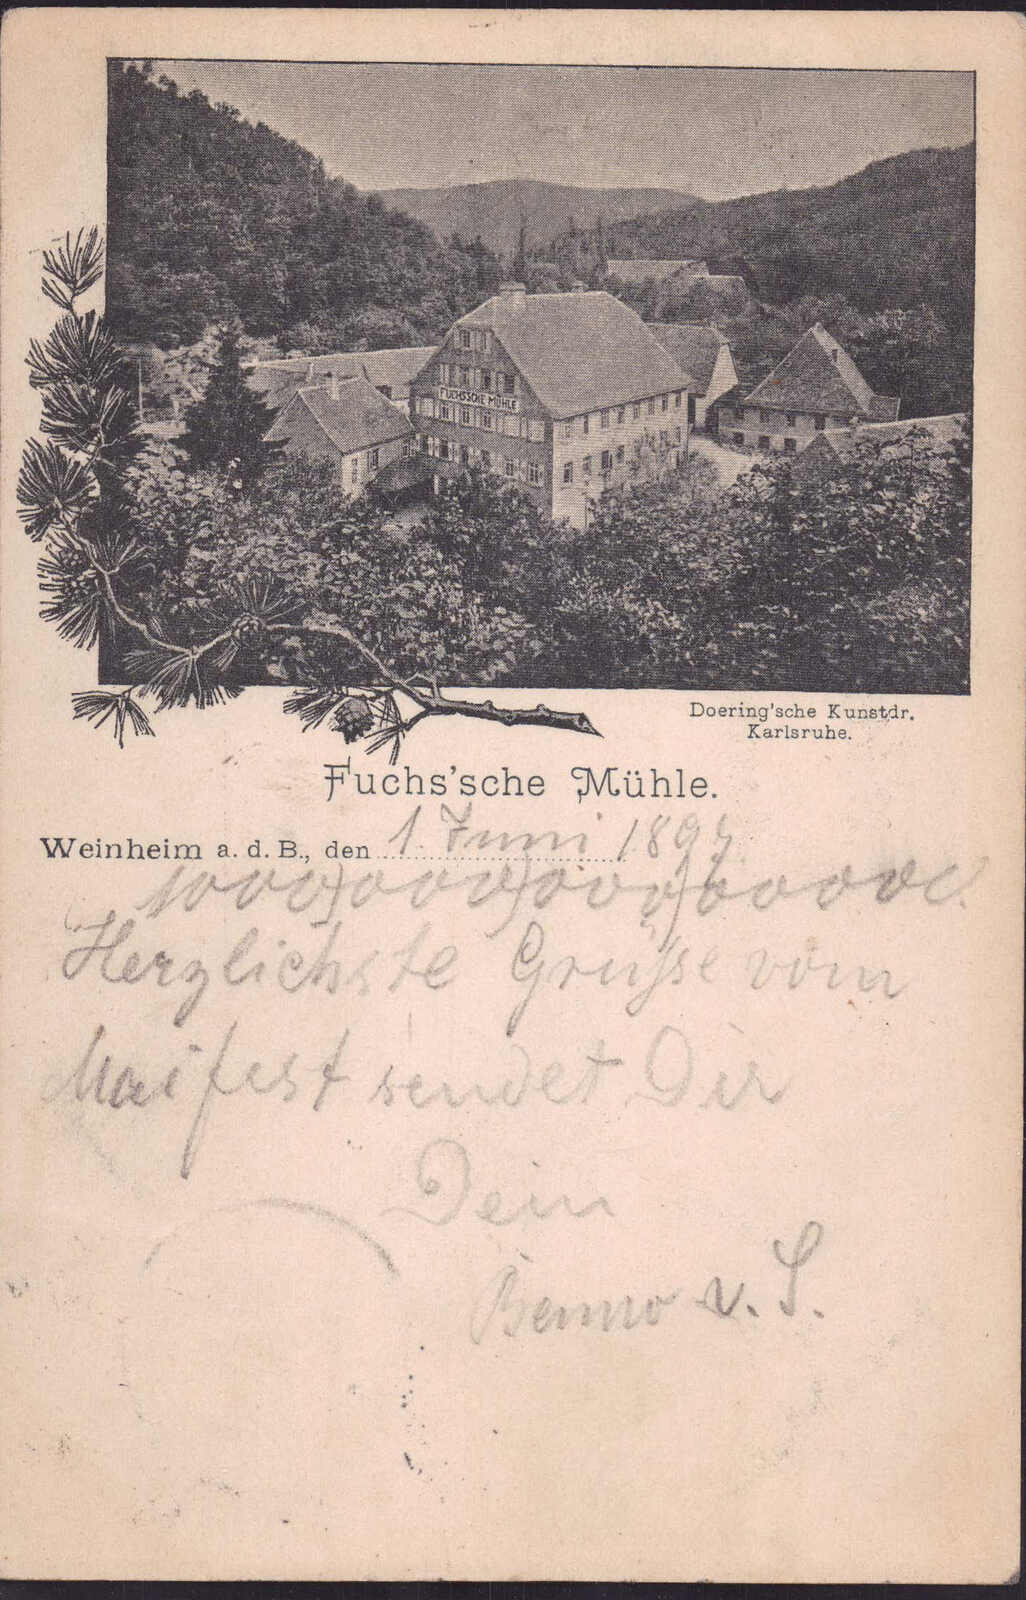 FUCHS'SCHE MÜHLE
Doering'sche Kunstdr.
Karlsruhe.
Fuchs'sche Mühle.
Weinheim a. d. B., den 1. Juni 1897
Herzlichste Grüsse vom
Maifest sendet Dir
Dein
Benno v. S.